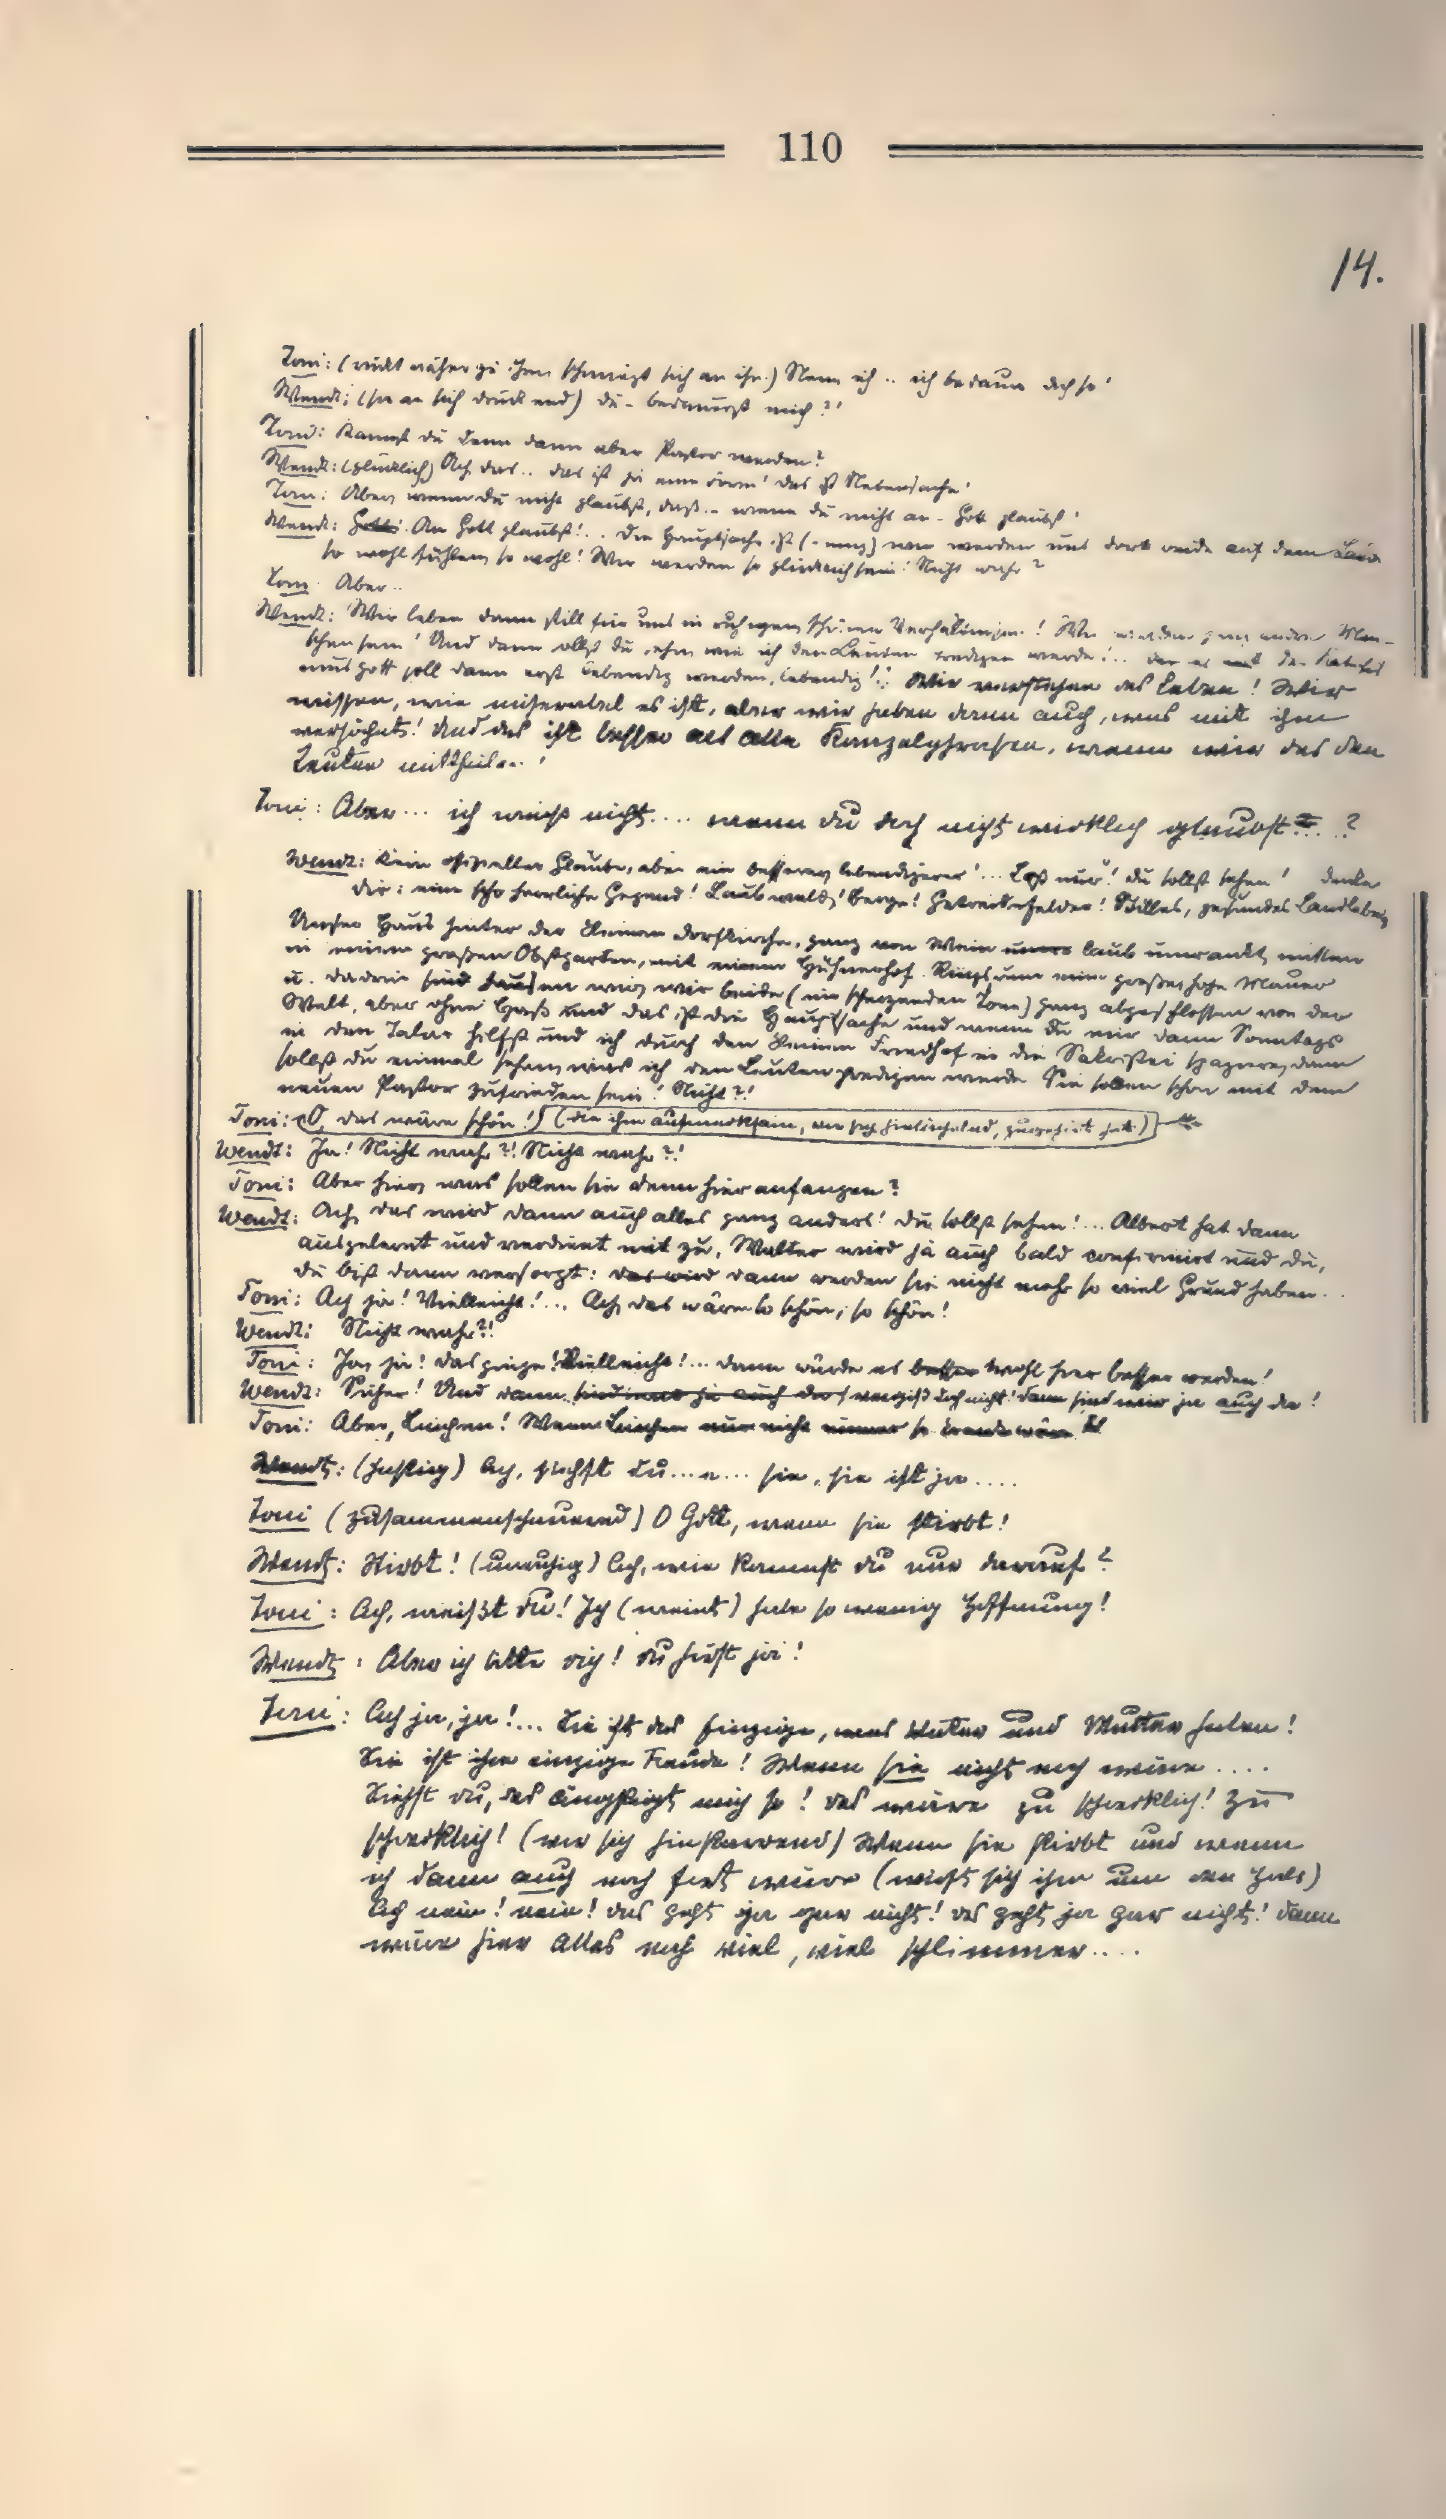 110
14.
Toni: (rückt näher zu ihm schmiegt sich an ihn.) Nein ich .. ich bedaure dich so!
Wendt: (sie an sich drückend) Du - bedauerst mich?!
Toni: Kannst du denn dann aber Pastor werden?
Wendt: (glücklich) Ach, das .. das ist ja eine Form! Das ist Nebensache!
Toni: Aber, wenn du nicht glaubst, daß .. wenn du nicht an - Gott glaubst!
Wendt: Gott! An Gott glaubst! .. Die Hauptsache ist wir werden uns dort beide auf dem
so wohl fühlen, so wohl! Wir werden so glücklich sein! Nicht wahr?
Toni Aber ..
Wendt: Wir leben dann still für uns in ruhigen, schönen Verhältnissen! Wir werden ganz andre Men-
schen sein! Und dann sollst du sehn wie ich den Leuten predigen werde! ..
gott soll dann erst lebendig werden, lebendig! .. Wir verstehen das Leben! Wir
wissen, wie miserabel es ist, aber wir haben dann auch, was mit ihm
versöhnt! Und das ist besser als alle Kanzelphrasen, wenn wir das den
Leuten mittheilen!
Toni: Aber ... ich weiß nicht .... wenn du doch nicht wirklich glaubst ... ?
Wendt: Kein offizieller Glaube, aber ein besserer, lebendigerer! ... Laß nur! Du sollst sehen! Denke
dir: eine so herrliche Gegend! Laubwald, Berge! Getreidefelder! Stilles, gesundes Landleben,
Unser Haus hinter der kleinen Dorfkirche, ganz von Wein laub umrankt, mitten
in einem großen Obstgarten, mit einem Hühnerhof. Ringsum eine große, hohe Mauer
u. dadrin wir, wir beide (im scherzenden Tone) ganz abgeschlossen von der
Welt, aber ohne Haß und das ist die Hauptsache und wenn du mir dann Sonntags
in den Talar hilfst und ich durch den kleinen Friedhof in die Sakristei spaziere, dann
sollst du einmal sehen, was ich den Leuten predigen werde. Sie sollen schon mit dem
neuen Pastor zufrieden sein! Nicht?!
Toni: O, das wäre schön!) (die ihm aufmerksam, vor sich hinlächelnd, zugehört hat.)
Wendt: Ja! Nicht wahr?! Nicht wahr?!
Toni: Aber hier, was sollen sie denn hier anfangen?
Wendt: Ach, das wird dann auch alles ganz anders! Du sollst sehen! ... Albert hat dann
ausgelernt und verdient mit zu, Walter wird ja auch bald confirmirt und du,
du bist dann versorgt: das wird dann werden sie nicht mehr so viel Grund haben ..
Toni: Ach ja! Vielleicht! ... Ach, das wäre so schön, so schön!
Wendt: Nicht wahr?!
Toni: Ja, ja! Das ginge! Vielleicht! ... Dann würde es besser wohl hier besser werden!
Wendt: Sicher! Und dann sind wir ja auch da vergiß doch nicht! dann sind wir ja auch da!
Toni: Aber, Linchen! Wenn Linchen nur nicht immer so krank wäre!
Wendt: (hustig) Ach, siehst du ... n ... sie, sie ist ja ....
Toni (zusammenschauernd) O Gott, wenn sie stirbt!
Wendt: Stirbt! (unruhig) Ach, wie kommst du nur darauf?
Toni: Ach, weißt du! Ich (weint) habe so wenig Hoffnung!
Wendt: Aber ich bitte dich! Du hörst ja!
Toni: Ach ja, ja! ... Sie ist das Einzige, was Vater und Mutter haben!
Sie ist ihre einzige Freude! Wenn sie nicht noch wäre ....
Siehst du, das ängstigt mich so! Das wäre zu schrecklich! Zu
schrecklich! (vor sich hinstarrend) Wenn sie stirbt und wenn
ich dann auch noch fort wäre (wirft sich ihm um den Hals)
Ach nein! nein! das geht ja gar nicht! das geht ja gar nicht! dann
wäre hier Alles noch viel, viel schlimmer ....